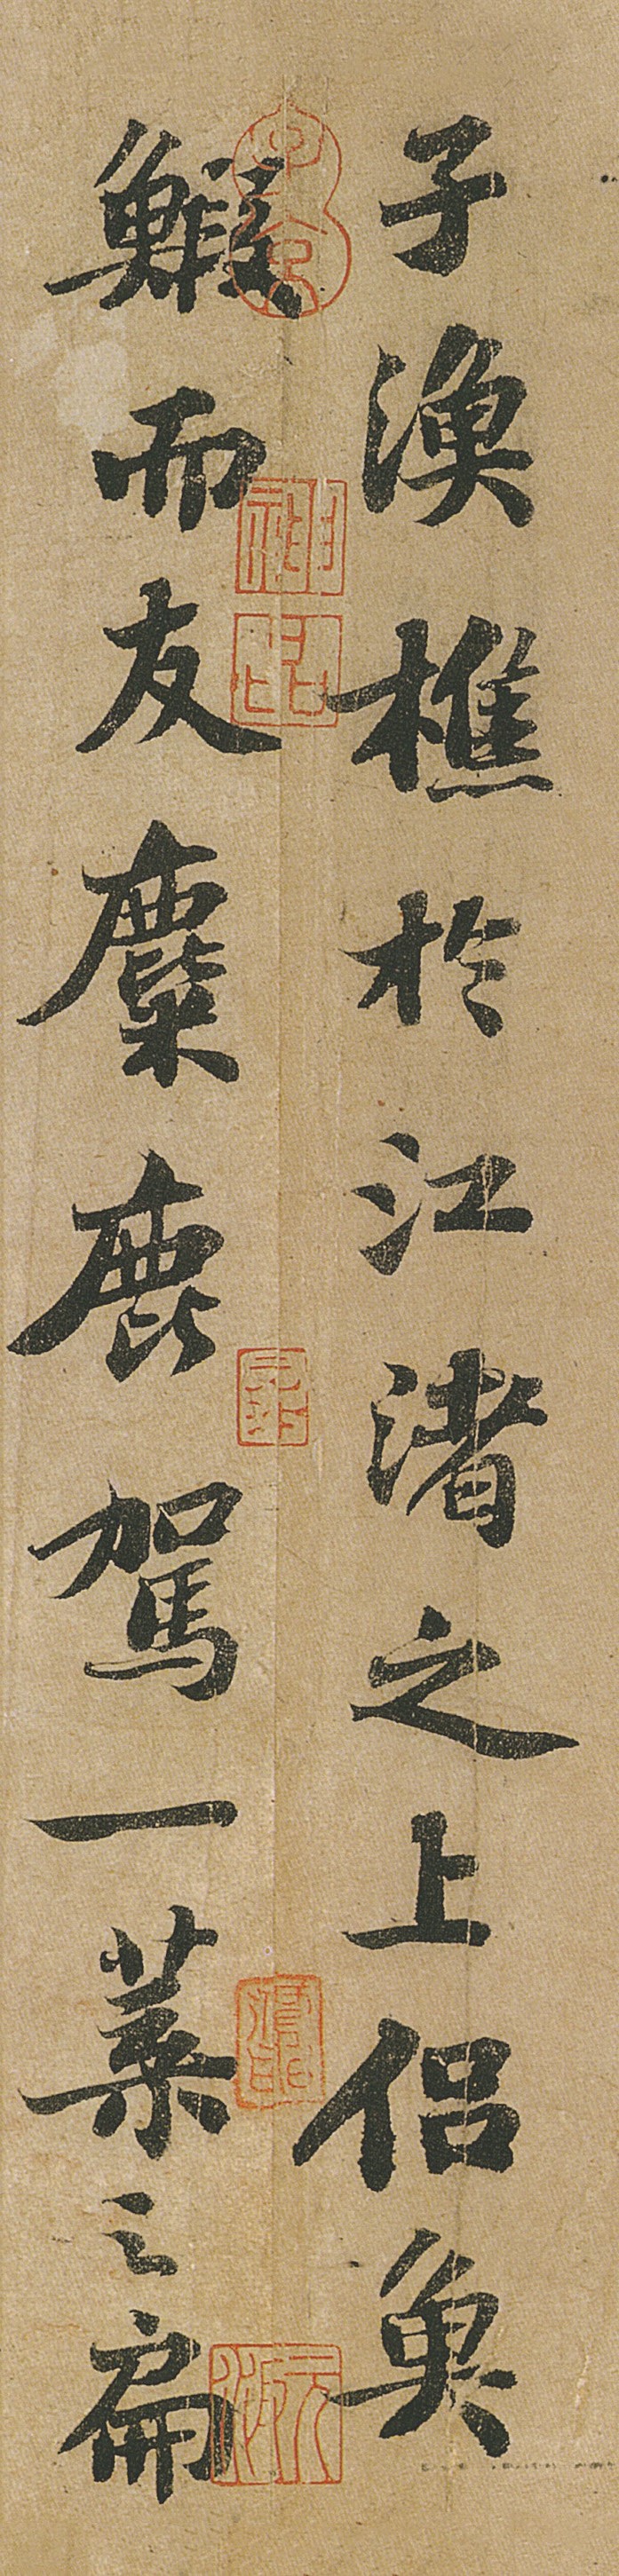 子漁樵於江渚之上侣魚
鰕而友麋鹿駕一葉之扁